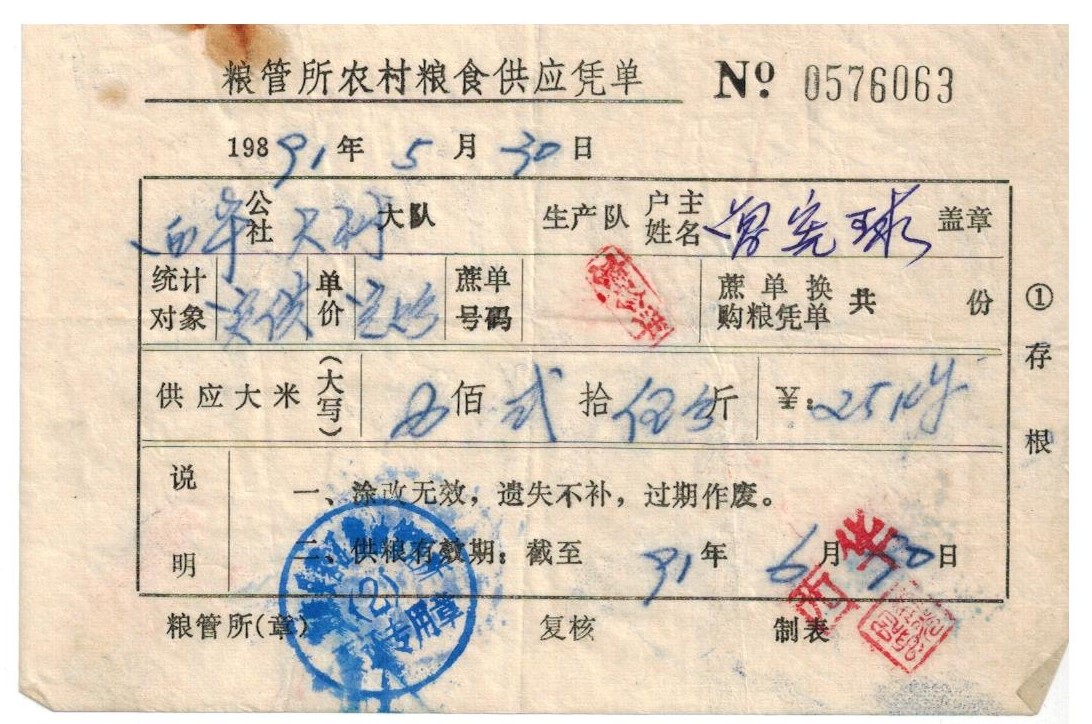 粮管所农村粮食供应凭单 № 0576063
198 91年 5月 30日
公社 大村 大队 生产队 户主姓名 曾宪球 盖章
统计对象 单价 蔗单号码 蔗单换购粮凭单 共 份
供应大米(大写) 佰 贰 拾 伍 斤 ¥: 25
说明
一、涂改无效,遗失不补,过期作废。
二、供粮有效期:截至 91年 6月 30日
粮管所(章) 复核 制表
①存根
(2)
专用章